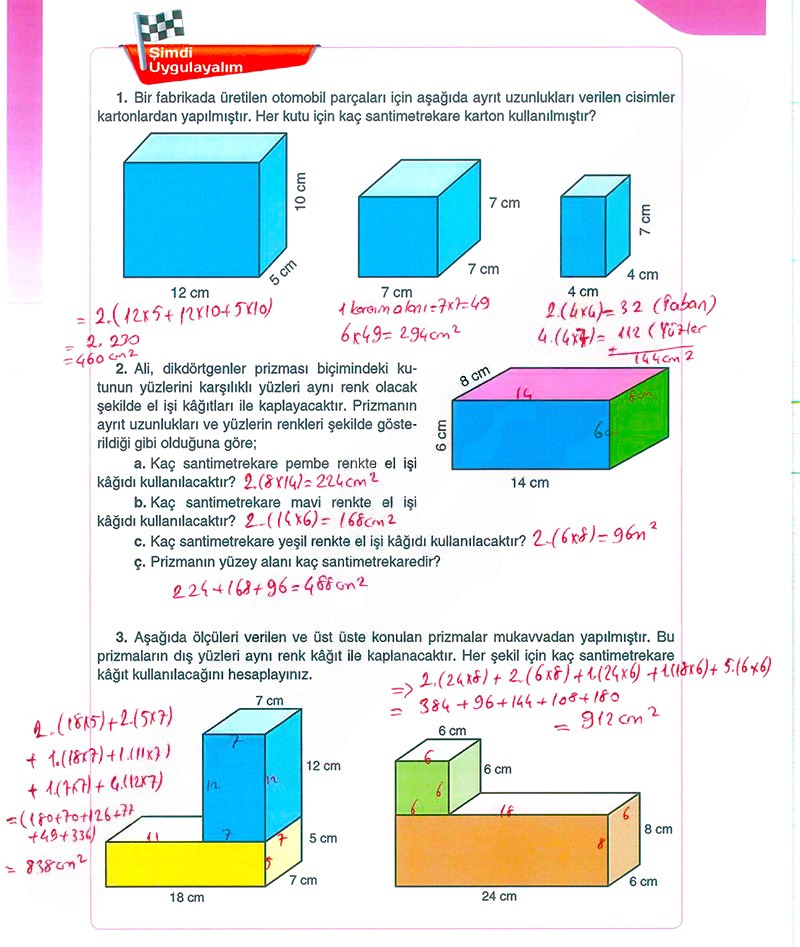 Şimdi
Uygulayalım
1. Bir fabrikada üretilen otomobil parçaları için aşağıda ayrıt uzunlukları verilen cisimler
kartonlardan yapılmıştır. Her kutu için kaç santimetrekare karton kullanılmıştır?
10 cm
5 cm
12 cm
7 cm
7 cm
7 cm
7 cm
4 cm
4 cm
= 2.(12x5+12x10+5x10)
= 2. 230
=460 cm2
1 karenin alanı=7x7=49
6x49=294cm2
2.(4x4)=32 (Taban)
4.(4x7)=112 (Yüzler
+
144cm2
2. Ali, dikdörtgenler prizması biçimindeki ku-
tunun yüzlerini karşılıklı yüzleri aynı renk olacak
şekilde el işi kâğıtları ile kaplayacaktır. Prizmanın
ayrıt uzunlukları ve yüzlerin renkleri şekilde göste-
rildiği gibi olduğuna göre;
8 cm
14
8cm
6 cm
6c
14 cm
a. Kaç santimetrekare pembe renkte el işi
kâğıdı kullanılacaktır? 2.(8x14)=224cm2
b. Kaç santimetrekare mavi renkte el işi
kâğıdı kullanılacaktır? 2.(14x6)=168cm2
c. Kaç santimetrekare yeşil renkte el işi kâğıdı kullanılacaktır? 2.(6x8)=96m2
ç. Prizmanın yüzey alanı kaç santimetrekaredir?
224+168+96=488cm2
3. Aşağıda ölçüleri verilen ve üst üste konulan prizmalar mukavvadan yapılmıştır. Bu
prizmaların dış yüzleri aynı renk kâğıt ile kaplanacaktır. Her şekil için kaç santimetrekare
kâğıt kullanılacağını hesaplayınız.
=> 2.(24x8)+2.(6x8)+1.(24x6)+1.(18x6)+5.(6x6)
= 384+96+144+108+180
= 912cm2
2.(18x5)+2.(5x7)
+ 1.(18x7)+1.(11x7)
+ 1.(7x7)+4.(12x7)
=(180+70+126+77
+49+336)
= 838cm2
7 cm
7
12
12
12 cm
11
7
7
5 cm
5
7 cm
18 cm
6 cm
6
6 cm
6
6
18
6
8
8 cm
6 cm
24 cm